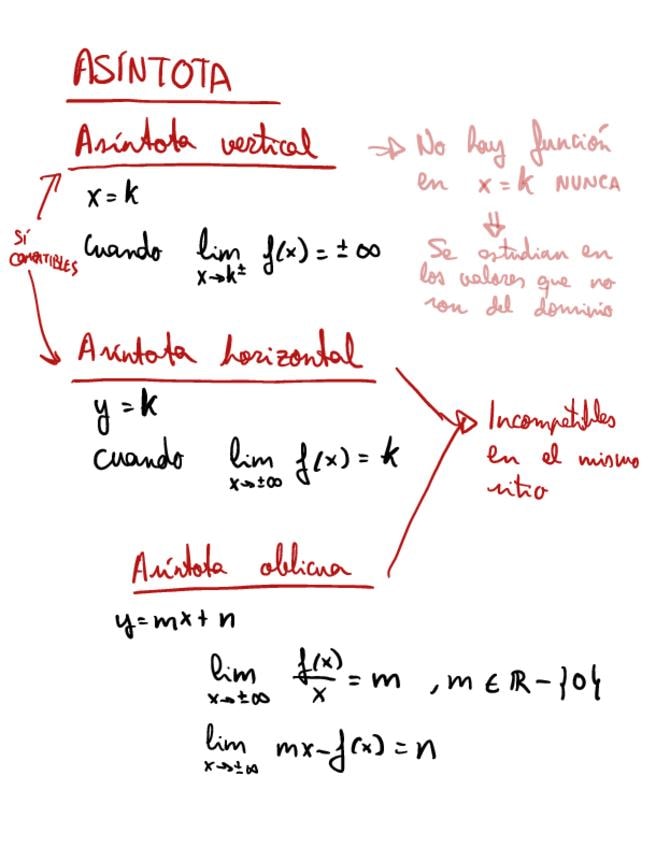 ASÍNTOTA
Asíntota vertical
→ No hay función
en x = k NUNCA
⇓
x = k
Cuando lim f(x) = ± ∞
x→k±
Se estudian en
los valores que no
son del dominio
SÍ
COMPATIBLES
Asíntota horizontal
y = k
Cuando lim f(x) = k
x→±∞
Incompatibles
en el mismo
sitio
Asíntota oblicua
y = mx + n
lim f(x)/x = m , m ∈ ℝ - {0}
x→±∞
lim mx - f(x) = n
x→±∞